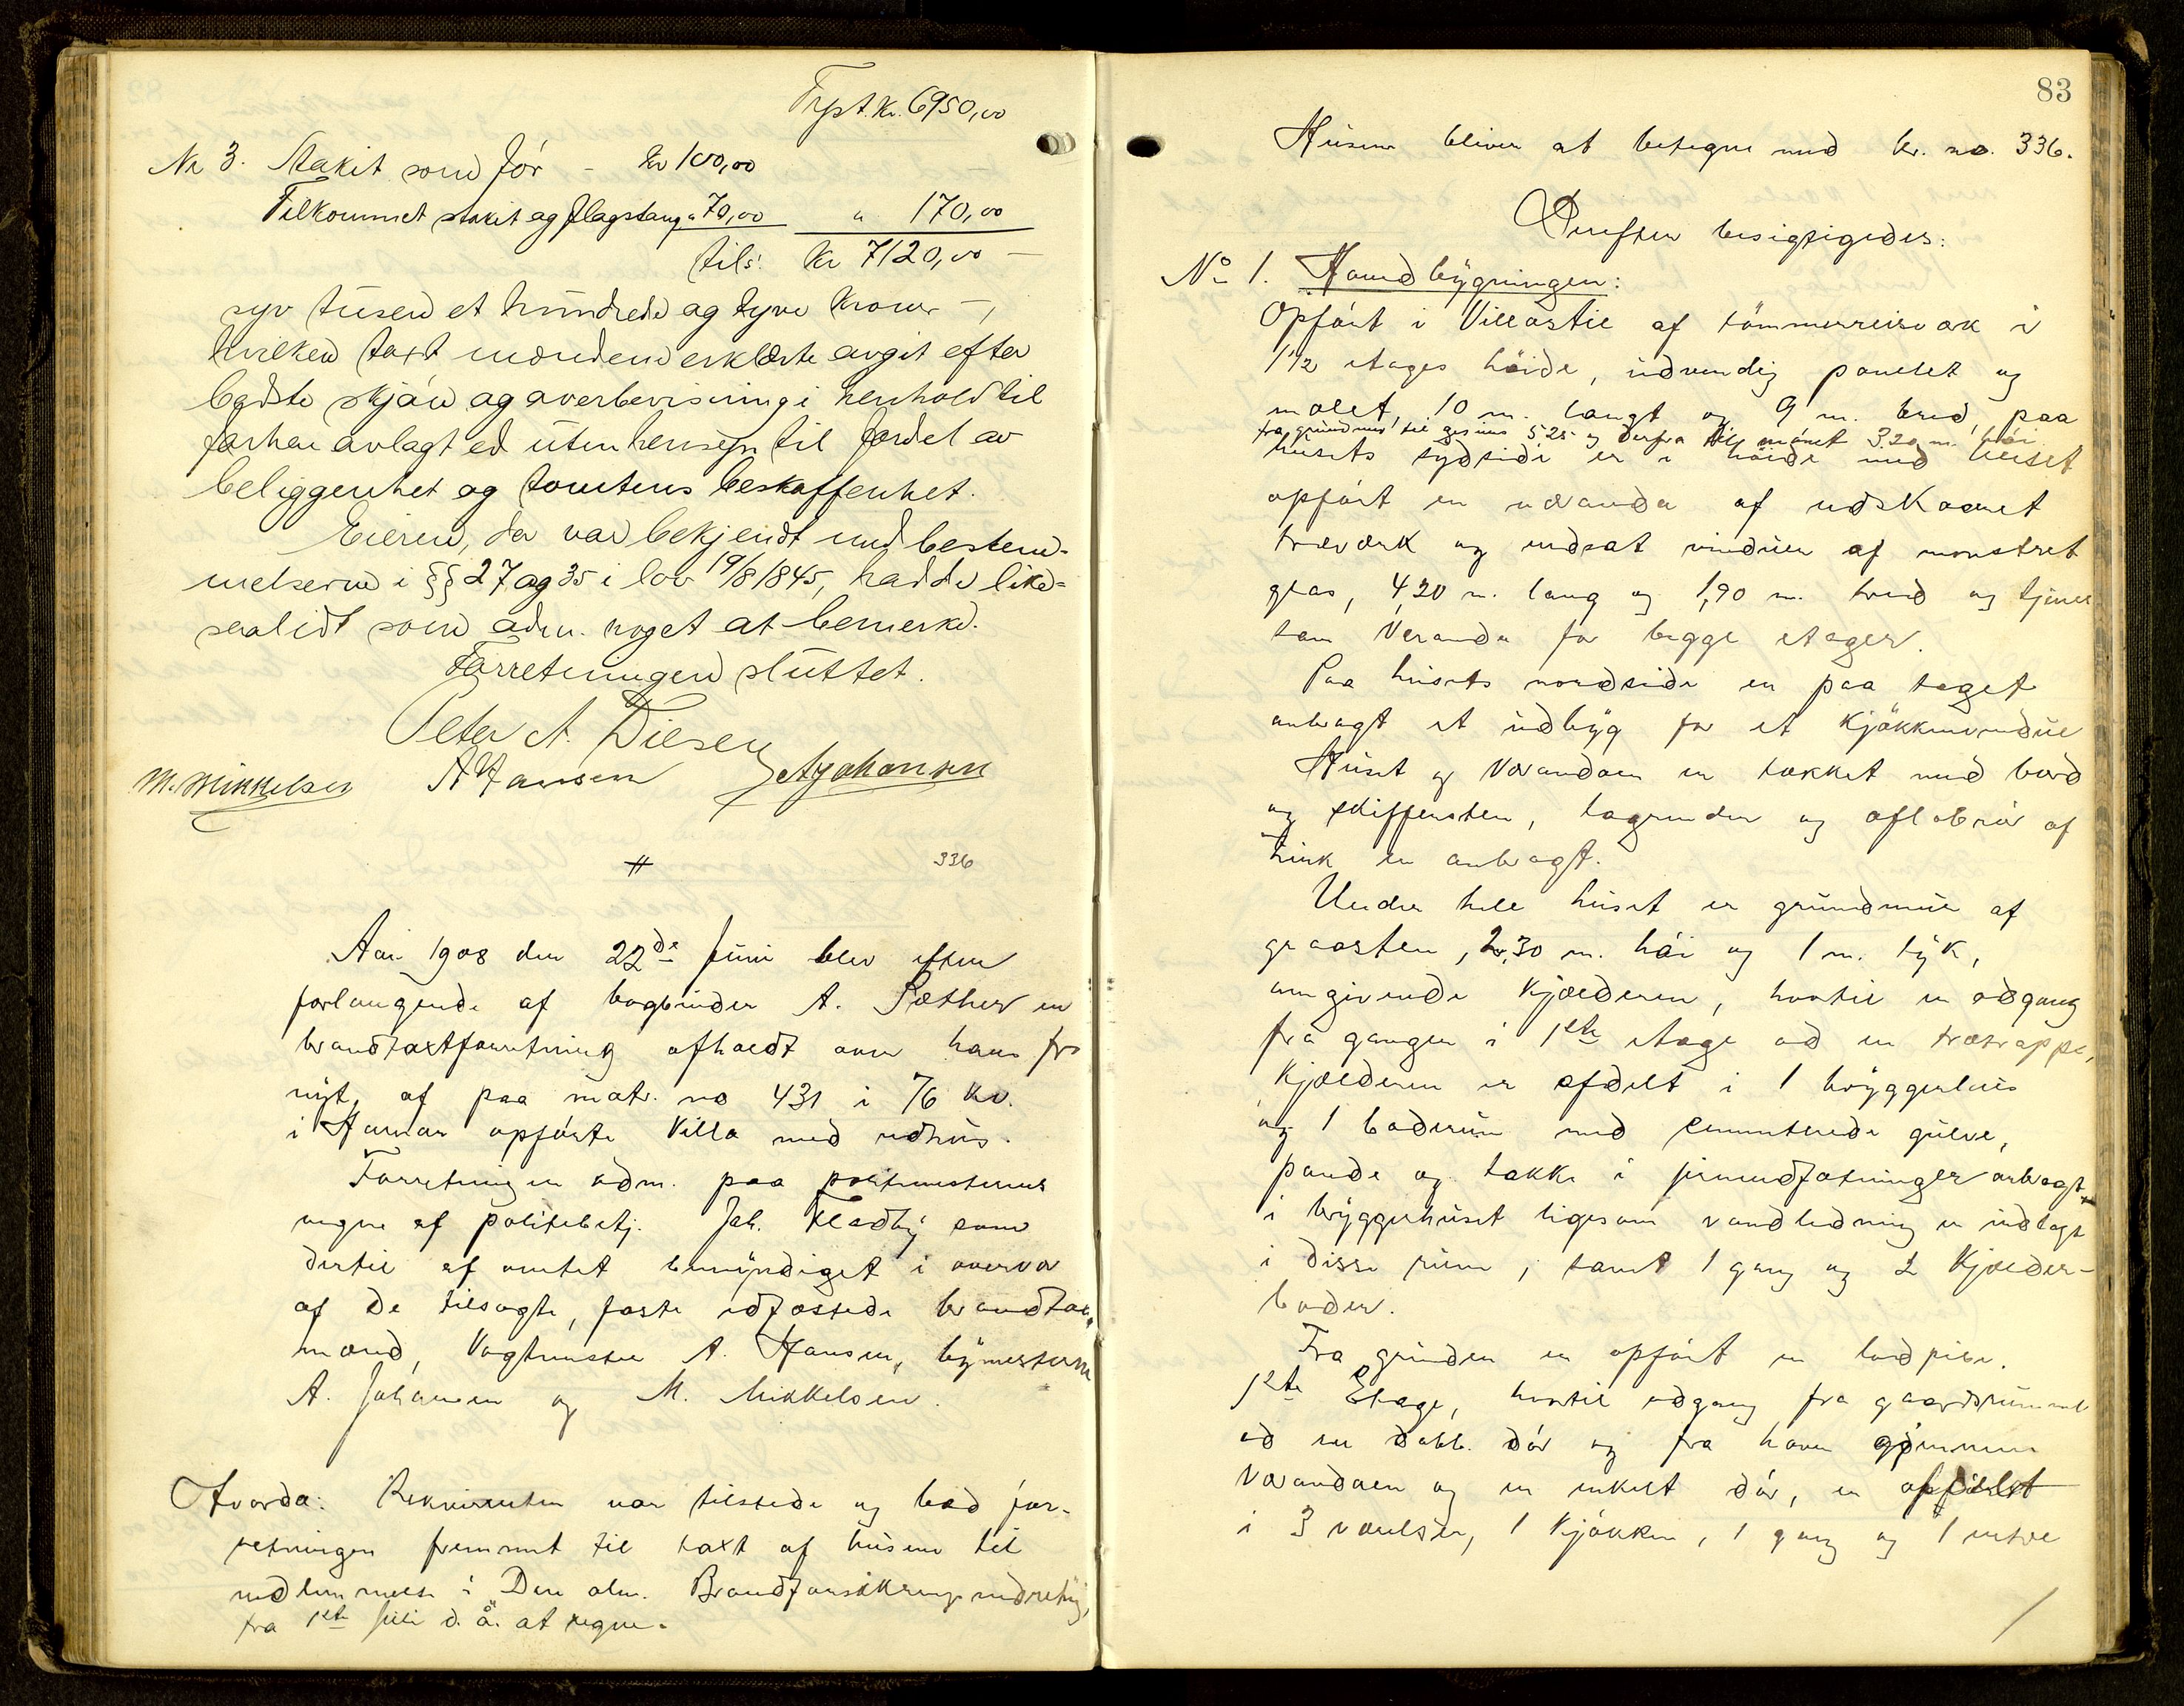 Trpst. Kr. 6950,00
No 3. Stakit som før - Kr 100,00
Tilkommet stakit og flagstang " 70,00 " 170,00
tils. Kr 7120,00 -
syv tusen et hundrede og tyve kroner -,
hvilken taxt mændene erklærte avgit efter
bedste skjøn og overbevisning i henhold til
forhen avlagt ed uten hensyn til fordel av
beliggenhet og tomtens beskaffenhet.
Eieren, der var bekjendt med bestem-
melserne i §§ 27 og 35 i lov 19/8 1845, hadde like-
saalidt som adm. noget at bemerke.
Forretningen sluttet.
Peter A. Diesen
M. Mikkelsen A Hansen A Johansen
336
Aar 1908 den 22de Juni blev efter
forlangende af bogbinder A. Sæther en
brandtaxtforretning afholdt over hans fra
nyt af paa matr. no 431 i 76 kv.
i Hamar opførte Villa med udhus.
Forretningen adm. paa politimesterens
vegne af politibetj. Joh. Fladby som
dertil af amtet bemyndiget i overvær
af de tilsagte, faste edfæstede brandtax-
mænd, Vagtmester A. Hansen, bymestrene
A. Johansen og M. Mikkelsen.
Hvorda: Rekvirenten var tilstede og bad for-
retningen fremmet til taxt af husene til
indlemmelse i Den alm. Brandforsikringsindretning,
fra 1ste Juli d. å. at regne.
83
Husene bliver at betegne med br. no. 336.
Derefter besigtigedes:
No 1. Hovedbygningen:
Opført i Villastil af tømmerreisværk i
1 1/2 etages høide, udvendig panelet og
malet, 10 m. langt og 9 m. bred, paa
fra grundmur til gesims 5,25 og derfra til mønet 3,20 m. høi
husets sydside er i høide med huset
opført en veranda af udskaaret
træværk og indsat vinduer af mønstret
glas, 4,20 m. lang og 1,90 m. bred og tjener
som Veranda for begge etager.
Paa husets nordside er paa taget
anbragt et udbyg for et kjøkkenvindue
Huset og Verandaen er tækket med bord
og skiffersten, tagrender og afløbsrør af
zink er anbragt.
Under hele huset er grundmur af
graasten, 2,30 m. høi og 1 m. tyk,
omgivende kjælderen, hvortil er adgang
fra gangen i 1ste etage ad en trætrappe,
Kjælderen er afdelt i 1 bryggerhus
og 1 baderum med cementerede gulve,
pande og takke i jernindfatninger anbragt
i bryggerhuset ligesom vandledning er indlagt
i disse rum, samt 1 gang og 2 Kjælder-
boder.
Fra grunden er opført en lodpibe.
1ste Etage, hvortil adgang fra gaardsrummet
ad en dobb. dør og fra haven gjennem
Verandaen og en enkelt dør, er afdelt
i 3 værelser, 1 Kjøkken, 1 gang og 1 indre